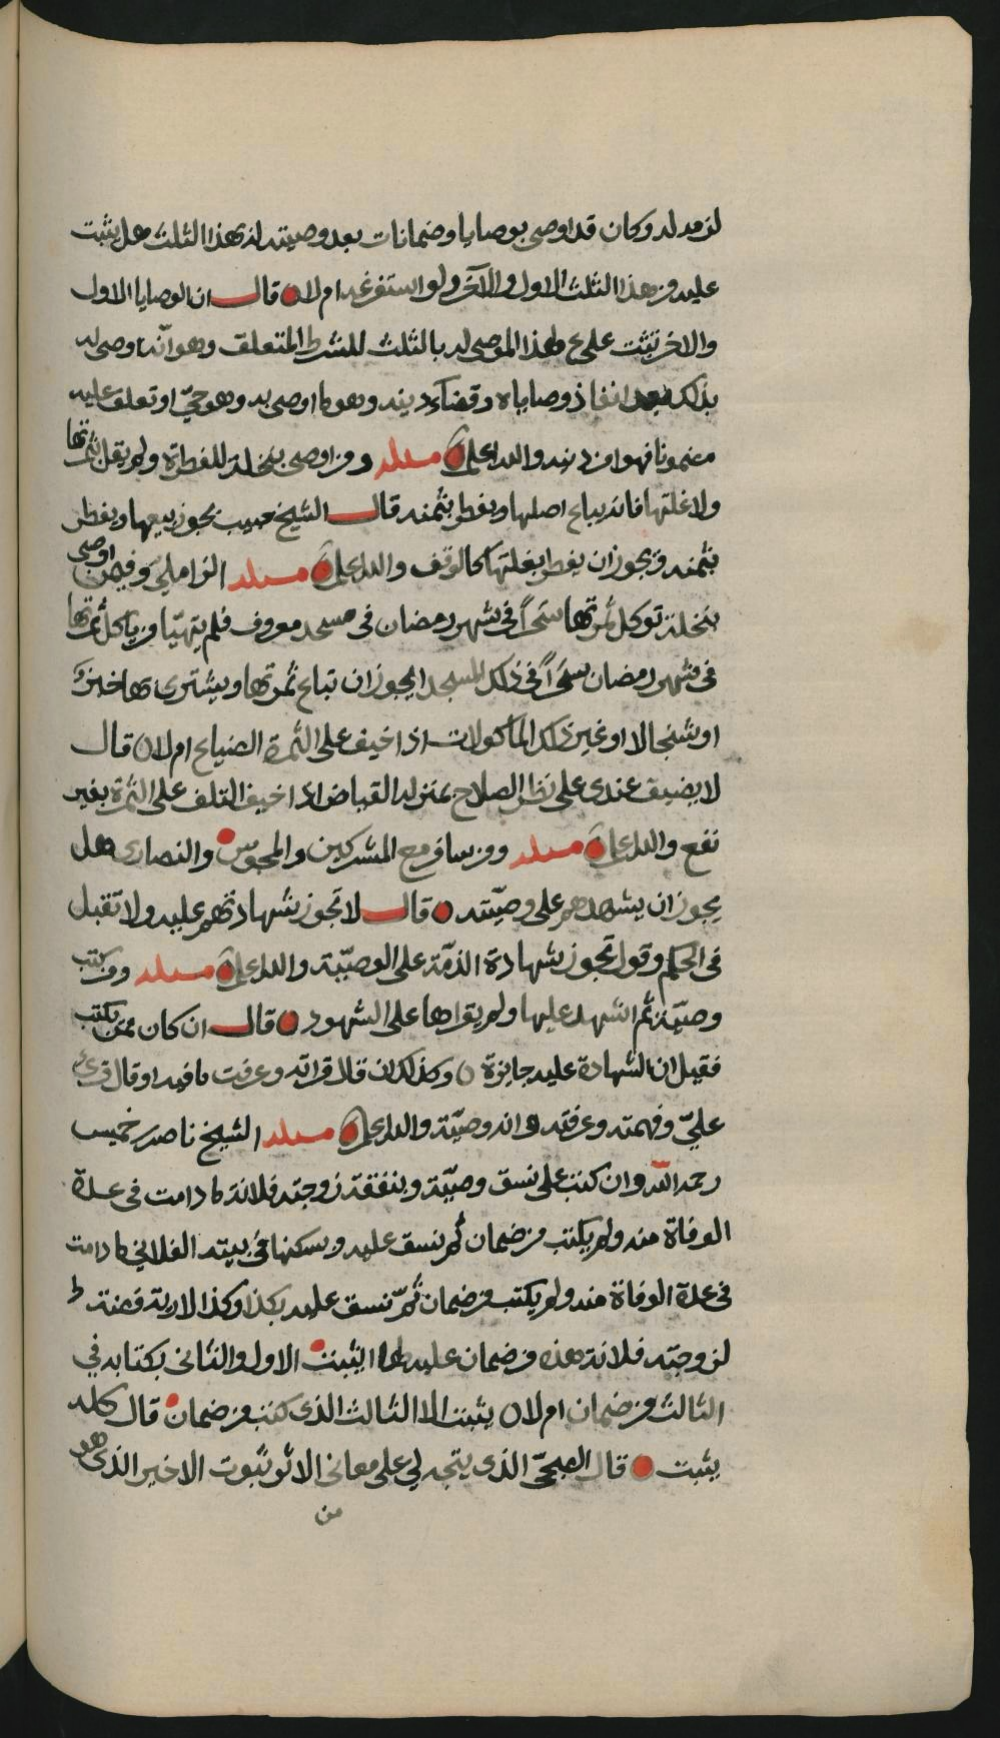 لزمه له وكان قد اوصى بوصايا وضمانات بعد وصيته له بهذا الثلث هل يثبت
عليه من هذا الثلث الاول والآخر ولو استفرغه ام لا قال ان الوصايا الاول
والاخر تثبت على هذا الموصى له بالثلث للشرط المتعلق وهو انه اوصى له
بذلك بعد انفاذ وصاياه وقضاء دينه وهو ما اوصى به وهو حيّ او تعلق عليه
مضمونا فهو من دينه والله اعلم مسئلة ومن اوصى بنخلة للفطرة ولم يقل بثمرتها
ولا غلتها فانه يباع اصلها ويفطر بثمنه قال الشيخ حبيب يجوز بيعها ويفطر
بثمنه ويجوز ان يفطر بغلتها كالوقف والله اعلم مسئلة الزاملي وفيمن اوصى
بنخلة توكل ثمرتها سَحَراً في شهر رمضان في مسجد معروف فلم يتهيّا من ياكل ثمرتها
في شهر رمضان سَحَراً في ذلك المسجد ايجوز ان تباع ثمرتها ويشترى بها خبز
او شنجال او غير ذلك الماكولات اذا خيف على الثمرة الضياع ام لا قال
لا يضيق عندي على نظر الصلاح بمنزلة القياض اذا خيف التلف على الثمرة بغير
نفع والله اعلم مسئلة ومن سافر مع المشركين والمجوس والنصارى هل
يجوز ان يشهدهم على وصيّته قال لا تجوز شهادتهم عليه ولا تقبل
في الحكم وقول تجوز شهادة الذمّة على الوصيّة والله اعلم مسئلة ومن كتب
وصيّة ثم اشهد عليها ولم يقراها على الشهود قال ان كان ممن يكتب
فقيل ان الشهادة عليه جايزة وكذلك ان قال قراته وعرفت ما فيه او قال قرئ
عليّ وفهمته وعرفته وانه وصيّة والله اعلم مسئلة الشيخ ناصر بن خميس
رحمه الله وان كتب على نسق وصيّة وبنفقة زوجته فلانة ما دامت في عدة
الوفاة منه ولم يكتب من ضمان ثم نسق عليه وسكنها في بيته الفلاني ما دامت
في عدة الوفاة منه ولم يكتب من ضمان ثمّ نسق عليه بكذا وكذا لارية فضة
لزوجته فلانة هذه من ضمان عليه لها ايثبت الاول والثاني بكتابه في
الثالث من ضمان ام لا يثبت الا الثالث الذي كتب من ضمان قال كله
يثبت قال الصبحيّ الذي يتجه لي على معاني الاثر ثبوت الاخير الذي هو
من